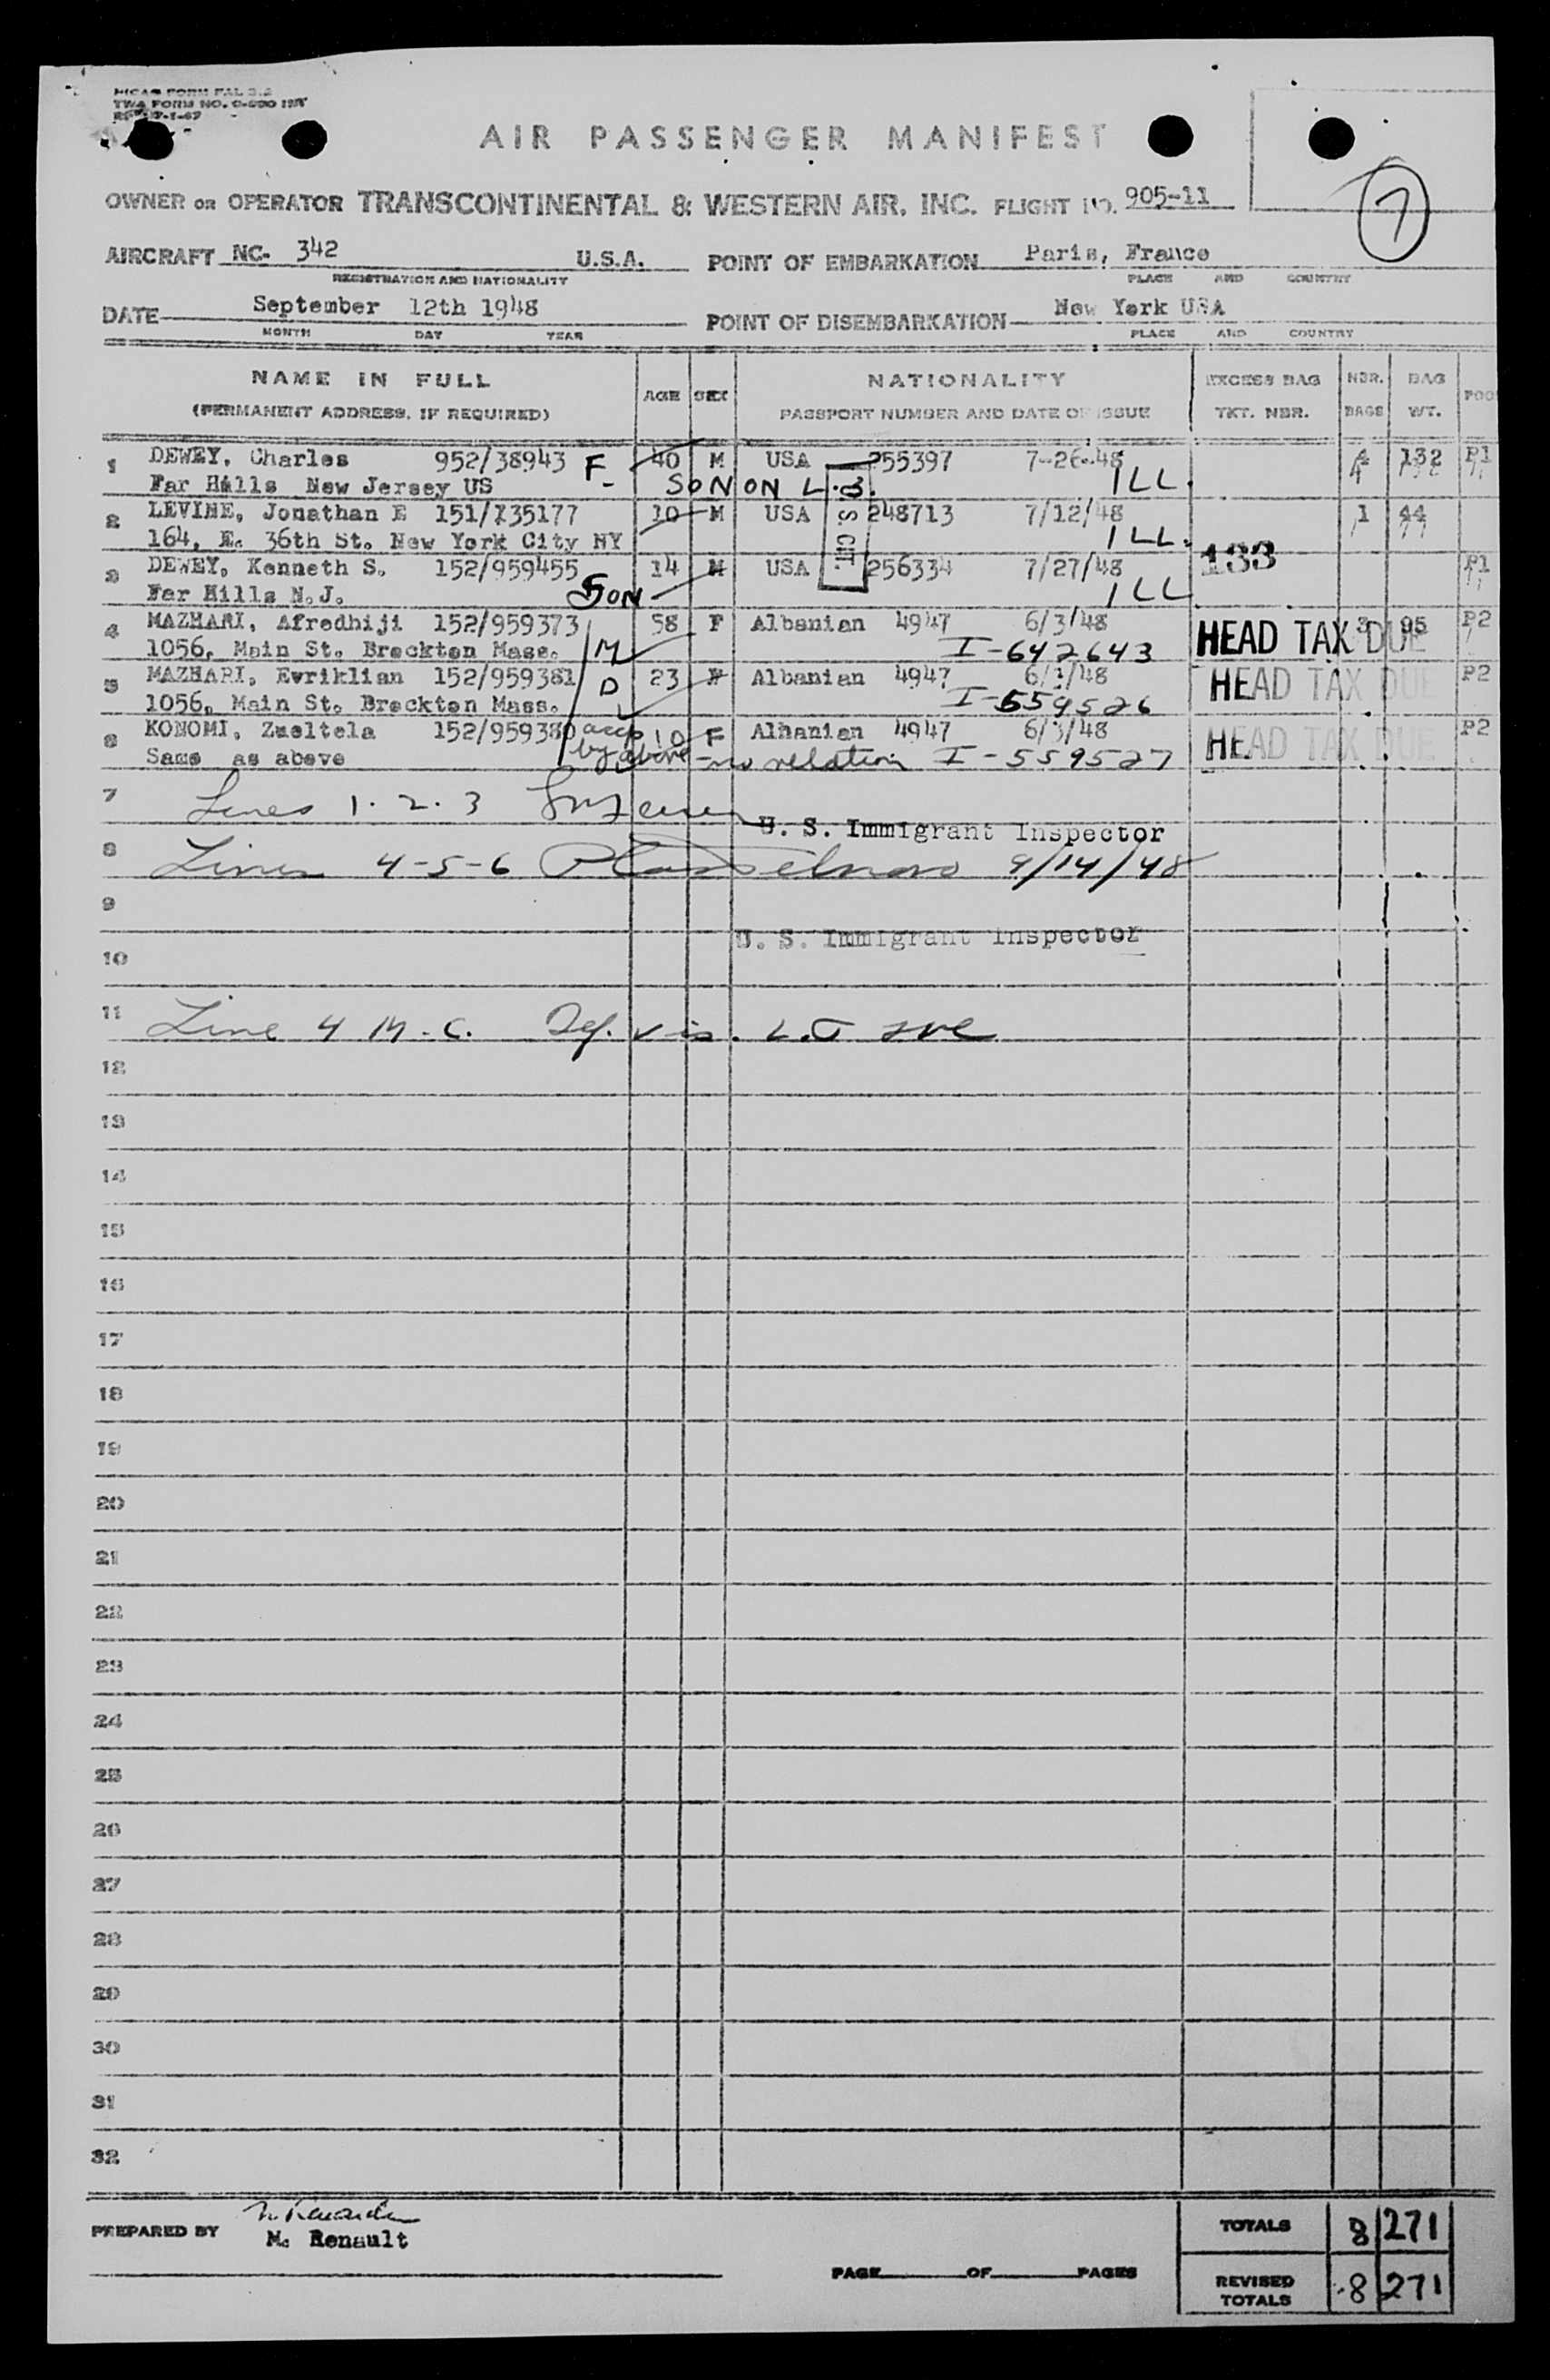 AIR PASSENGER MANIFEST
7
OWNER OR OPERATOR TRANSCONTINENTAL & WESTERN AIR, INC. FLIGHT NO. 905-11
AIRCRAFT NC- 342 U.S.A. POINT OF EMBARKATION Paris, France
REGISTRATION AND NATIONALITY PLACE AND COUNTRY
DATE September 12th 1948 POINT OF DISEMBARKATION New York USA
MONTH DAY YEAR PLACE AND COUNTRY
NAME IN FULL AGE SEX NATIONALITY EXCESS BAG NBR. BAG
(PERMANENT ADDRESS, IF REQUIRED) PASSPORT NUMBER AND DATE OF ISSUE TKT. NBR. BAGS WT.
1 DEWEY, Charles 952/38943 F 40 M USA 255397 7-26-48 4 132 P1
Far Hills New Jersey US SON ON L.3. ILL.
2 LEVINE, Jonathan E 151/735177 10 M USA 248713 7/12/48 1 44
164, E. 36th St. New York City NY ILL.
3 DEWEY, Kenneth S. 152/959455 14 M USA 256334 7/27/48 133 P1
Far Hills N.J. SON ILL
4 MAZHARI, Afredhiji 152/959373 58 F Albanian 4947 6/3/48 3 95 P2
1056, Main St. Brockton Mass. M I-642643 HEAD TAX DUE
5 MAZHARI, Evriklian 152/959381 D 23 F Albanian 4947 6/3/48 HEAD TAX DUE P2
1056, Main St. Brockton Mass. I-559526
6 KONOMI, Zueltela 152/959380 acc 10 F Albanian 4947 6/3/48 HEAD TAX DUE P2
Same as above by above - no relation I-559527
7 Lines 1.2.3
U. S. Immigrant Inspector
8 Lines 4-5-6 9/14/48
9
U. S. Immigrant Inspector
10
11 Line 4 M.C. Def. vis. L.
12
13
14
15
16
17
18
19
20
21
22
23
24
25
26
27
28
29
30
31
32
PREPARED BY M. Renault TOTALS 8 271
PAGE OF PAGES REVISED TOTALS 8 271